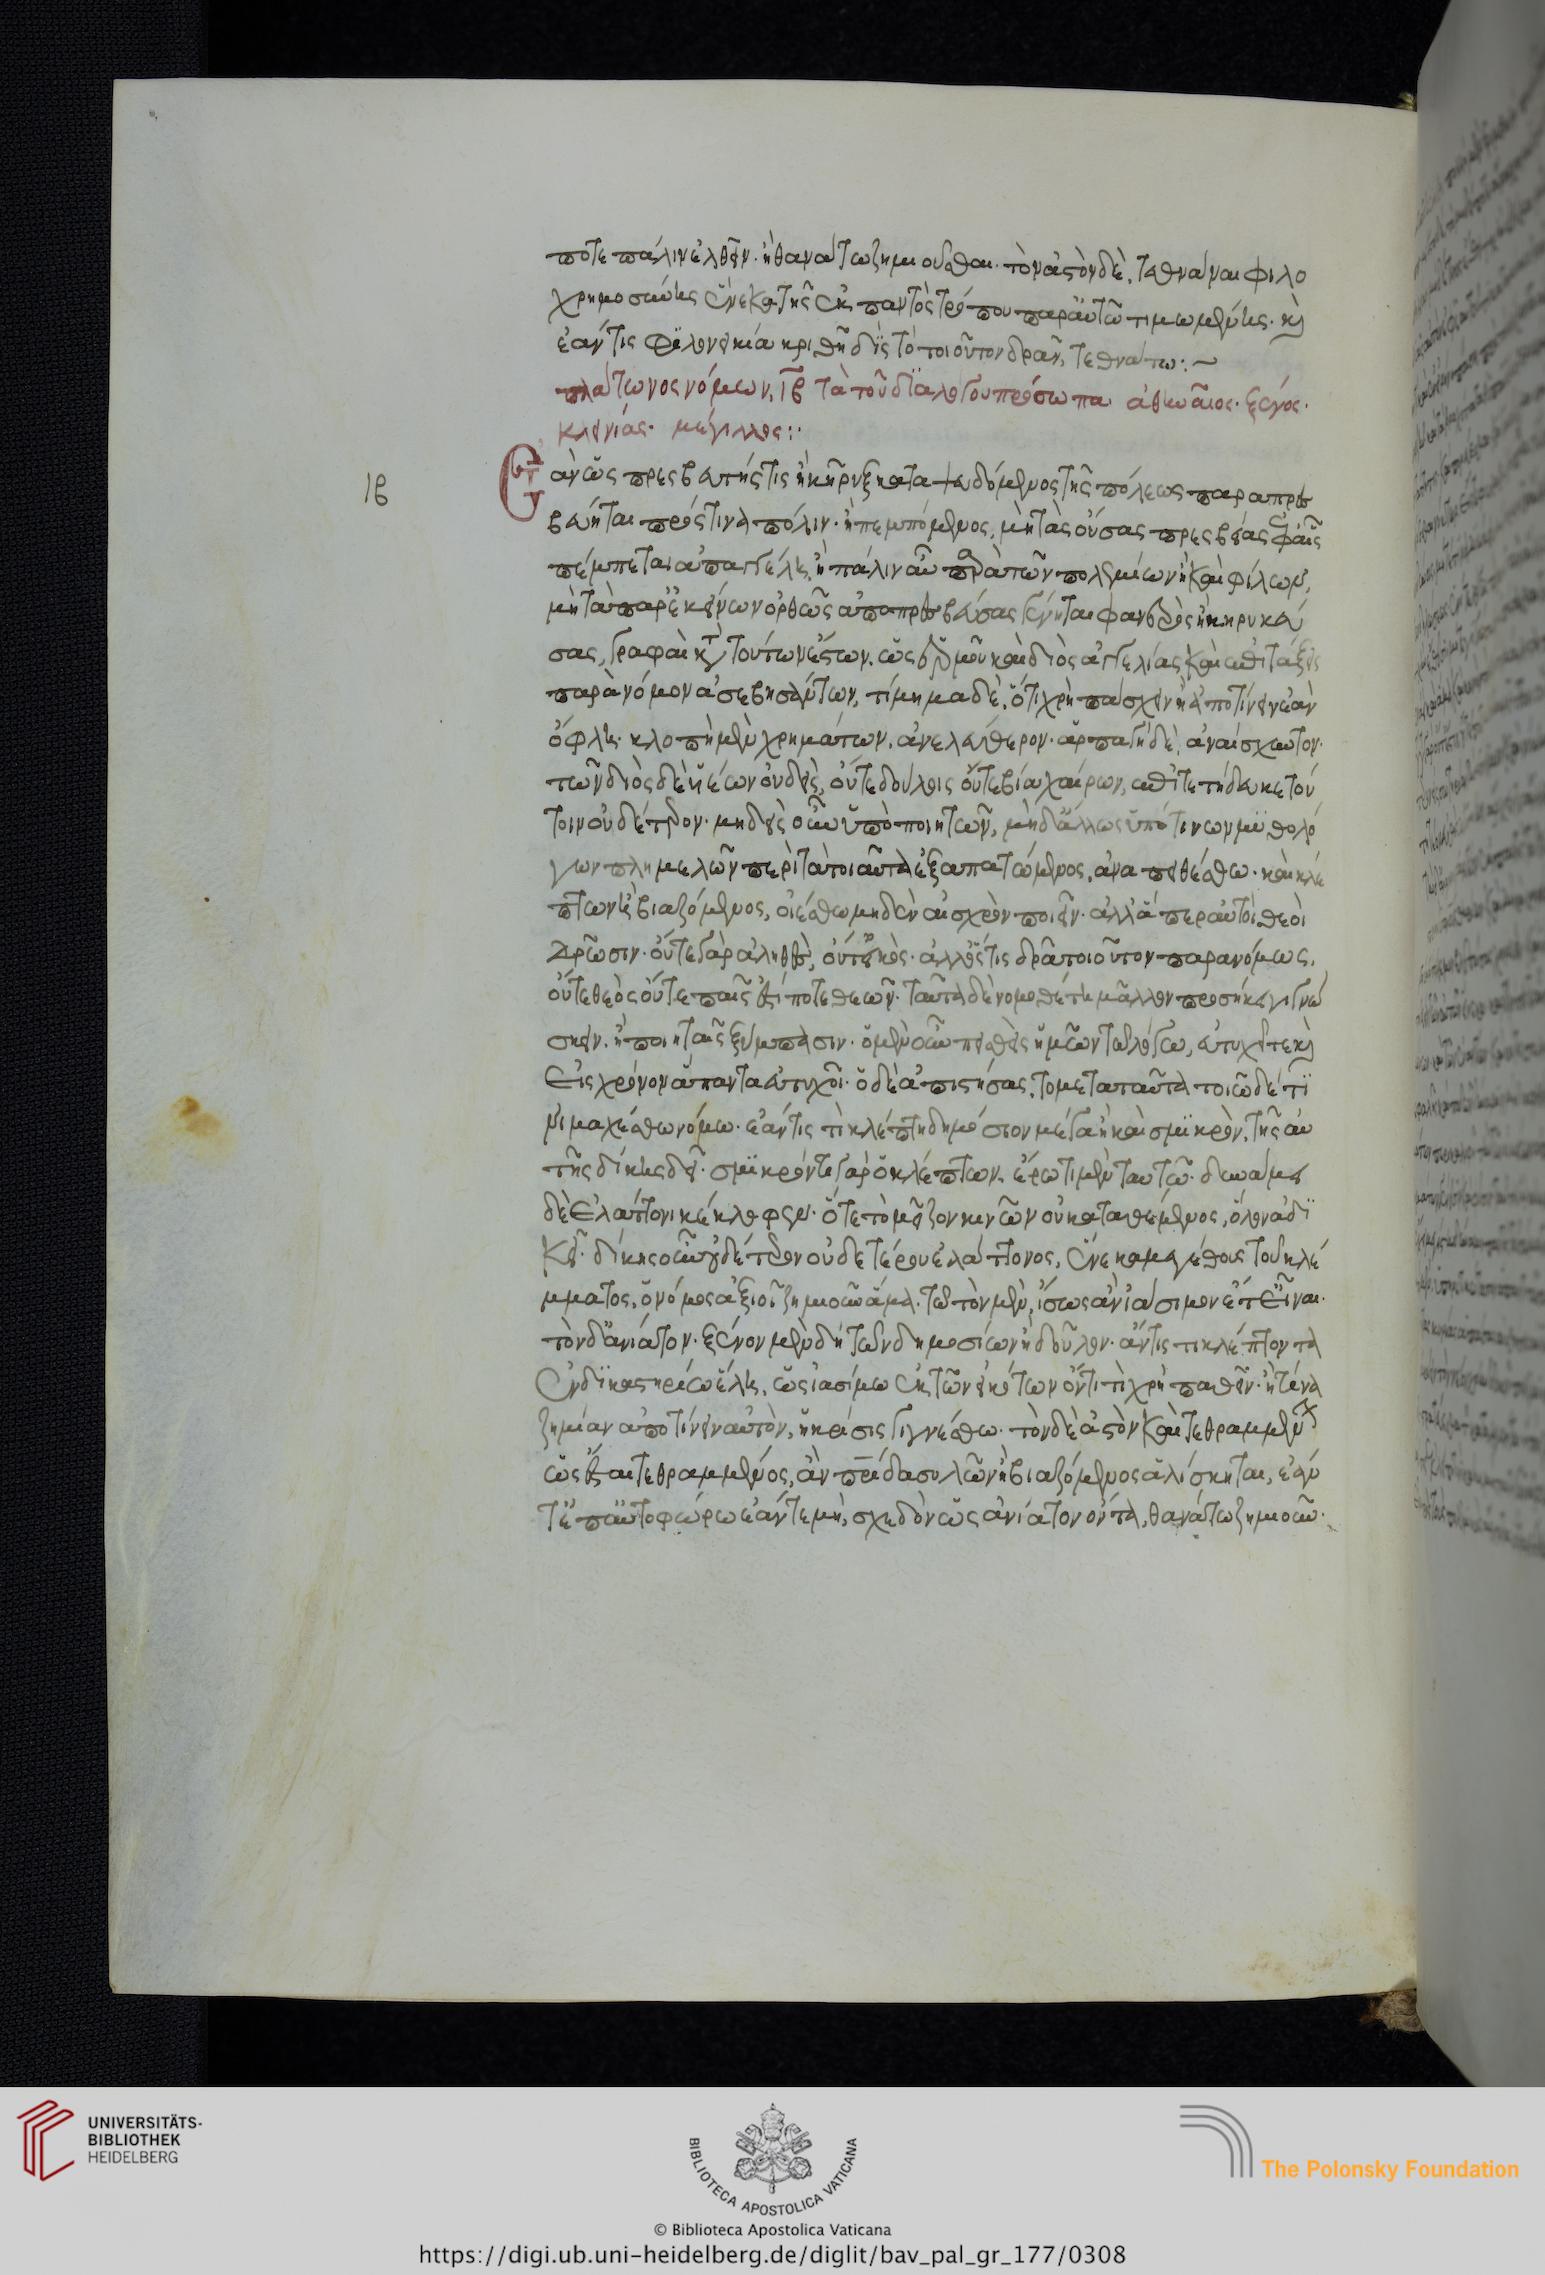 ποτε πάλιν ἐλθεῖν· ἢ θανάτω ζημιοῦσθαι· τὸν ἀστὸν δὲ, τεθνάναι φιλο
χρημοσύνης ἕνεκα τῆς ἐκ παντὸς τρόπου παρ' αὐτῶ τιμωμένης· καὶ
ἐάν τις φιλονεικία κριθῆ δὶς τὸ τοιοῦτον δρᾶν, τεθνάτω:~
πλάτωνος νόμων, ιβ τὰ τοῦ διαλόγου πρόσωπα ἀθηναῖος· ξένος·
κλεινίας· μέγιλλος:·
ιβ Ἐὰν ὡς πρεσβευτής τις ἢ κῆρυξ καταψευδόμενος τῆς πόλεως παραπρεσ
βεύηται πρός τινα πόλιν· ἢ πεμπόμενος, μὴ τὰς οὔσας πρεσβείας ἐφ' αἷς
πέμπεται ἀπαγγέλλη, ἢ πάλιν αὖ παρὰ τῶν πολεμίων ἢ καὶ φίλων,
μὴ τὰ παρ' ἐκείνων ὀρθῶς ἀποπρεσβεύσας γένηται φανερὸς ἢ κηρυκεύ
σας, γραφαὶ κατὰ τούτων ἔστων, ὡς ἑρμοῦ καὶ διὸς ἀγγελίας καὶ ἐπιτάξεις
παρὰ νόμον ἀσεβησάντων, τίμημα δὲ, ὅτι χρὴ πάσχειν ἢ ἀποτίνειν ἐὰν
ὄφλη· κλοπὴ μὲν χρημάτων, ἀνελεύθερον· ἁρπαγὴ δὲ, ἀναίσχυντον·
τῶν διὸς δὲ ὑέων οὐδεὶς, οὔτε δόλοις οὔτε βία χαίρων, ἐπιτετήδευκε τού
τοιν οὐδέτερον· μηδεὶς οὖν ὑπὸ ποιητῶν, μηδ' ἄλλως ὑπό τινων μυθολό
γων πλημελῶν περὶ τὰ τοιαῦτα ἐξαπατώμενος, ἀναπειθέσθω· καὶ κλέ
πτων ἢ βιαζόμενος, οἰέσθω μηδὲν αἰσχρὸν ποιεῖν· ἀλλ' ἅπερ αὐτοὶ θεοὶ
δρῶσιν· οὔτε γὰρ ἀληθὲς, οὔτ' εἰκὸς· ἀλλ' ὅστις δρᾶ τοιοῦτον παρανόμως,
οὔτε θεὸς οὔτε παῖς ἐστί ποτε θεῶν· ταῦτα δὲ νομοθέτη μᾶλλον προσήκει γιγνώ
σκειν, ἢ ποιηταῖς ξύμπασιν· ὁ μὲν οὖν πεισθεὶς ἡμῶν τῶ λόγω, εὐτυχεῖ τε καὶ
εἰς χρόνον ἅπαντα εὐτυχοῖ· ὁ δὲ ἀπιστήσας, τὸ μετὰ ταῦτα τοιῶδέ τι
νι μαχέσθω νόμω· ἐάν τις τὶ κλέπτη δημόσιον μέγα ἢ καὶ σμικρὸν, τῆς αὐ
τῆς δίκης δεῖ· σμικρόν τε γὰρ ὁ κλέπτων, ἔρωτι μὲν ταυτῶ· δυνάμει
δὲ ἐλάττονι κέκλοφεν· ὅ τε τὸ μεῖζον κινῶν οὐ καταθέμενος, ὅλον ἀδι
κεῖ· δίκης οὖν οὐδέτερον οὐδετέρου ἐλάττονος, ἕνεκα μεγέθους τοῦ κλέ
μματος, ὁ νόμος ἀξιοῖ ζημιοῦν ἅμα· τῶ τὸν μὲν, ἴσως ἂν ἰάσιμον ἔτ' εἶναι·
τὸν δ' ἀνίατον· ξένον μὲν δὴ τῶν δημοσίων ἢ δοῦλον· ἄν τις τὶ κλέπτοντα
ἐν δικαστηρίω ἕλη, ὡς ἰασίμω ἐκ τῶν εἰκότων ὄντι τὶ χρὴ παθεῖν· ἢ τίνα
ζημίαν ἀποτίνειν αὐτὸν, ἡ κρίσις γιγνέσθω· τὸν δὲ ἀστὸν καὶ τεθραμμένον
ὡς ἔσται τεθραμμένος, ἂν πατρίδα συλῶν ἢ βιαζόμενος ἁλίσκηται, ἐάν
τ' ἐπ' αὐτοφώρω ἐάν τε μὴ, σχεδὸν ὡς ἀνίατον ὄντα, θανάτω ζημιοῦν·
UNIVERSITÄTS-
BIBLIOTHEK
HEIDELBERG
BIBLIOTECA APOSTOLICA VATICANA
The Polonsky Foundation
© Biblioteca Apostolica Vaticana
https://digi.ub.uni-heidelberg.de/diglit/bav_pal_gr_177/0308